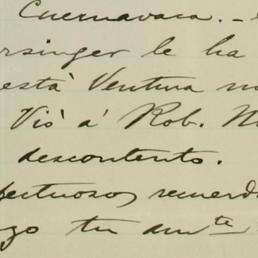 Cuernavaca. -
singer le ha
está Ventura
Vió á Rob.
descontento.
fectuosos recuerd
go tu am^te